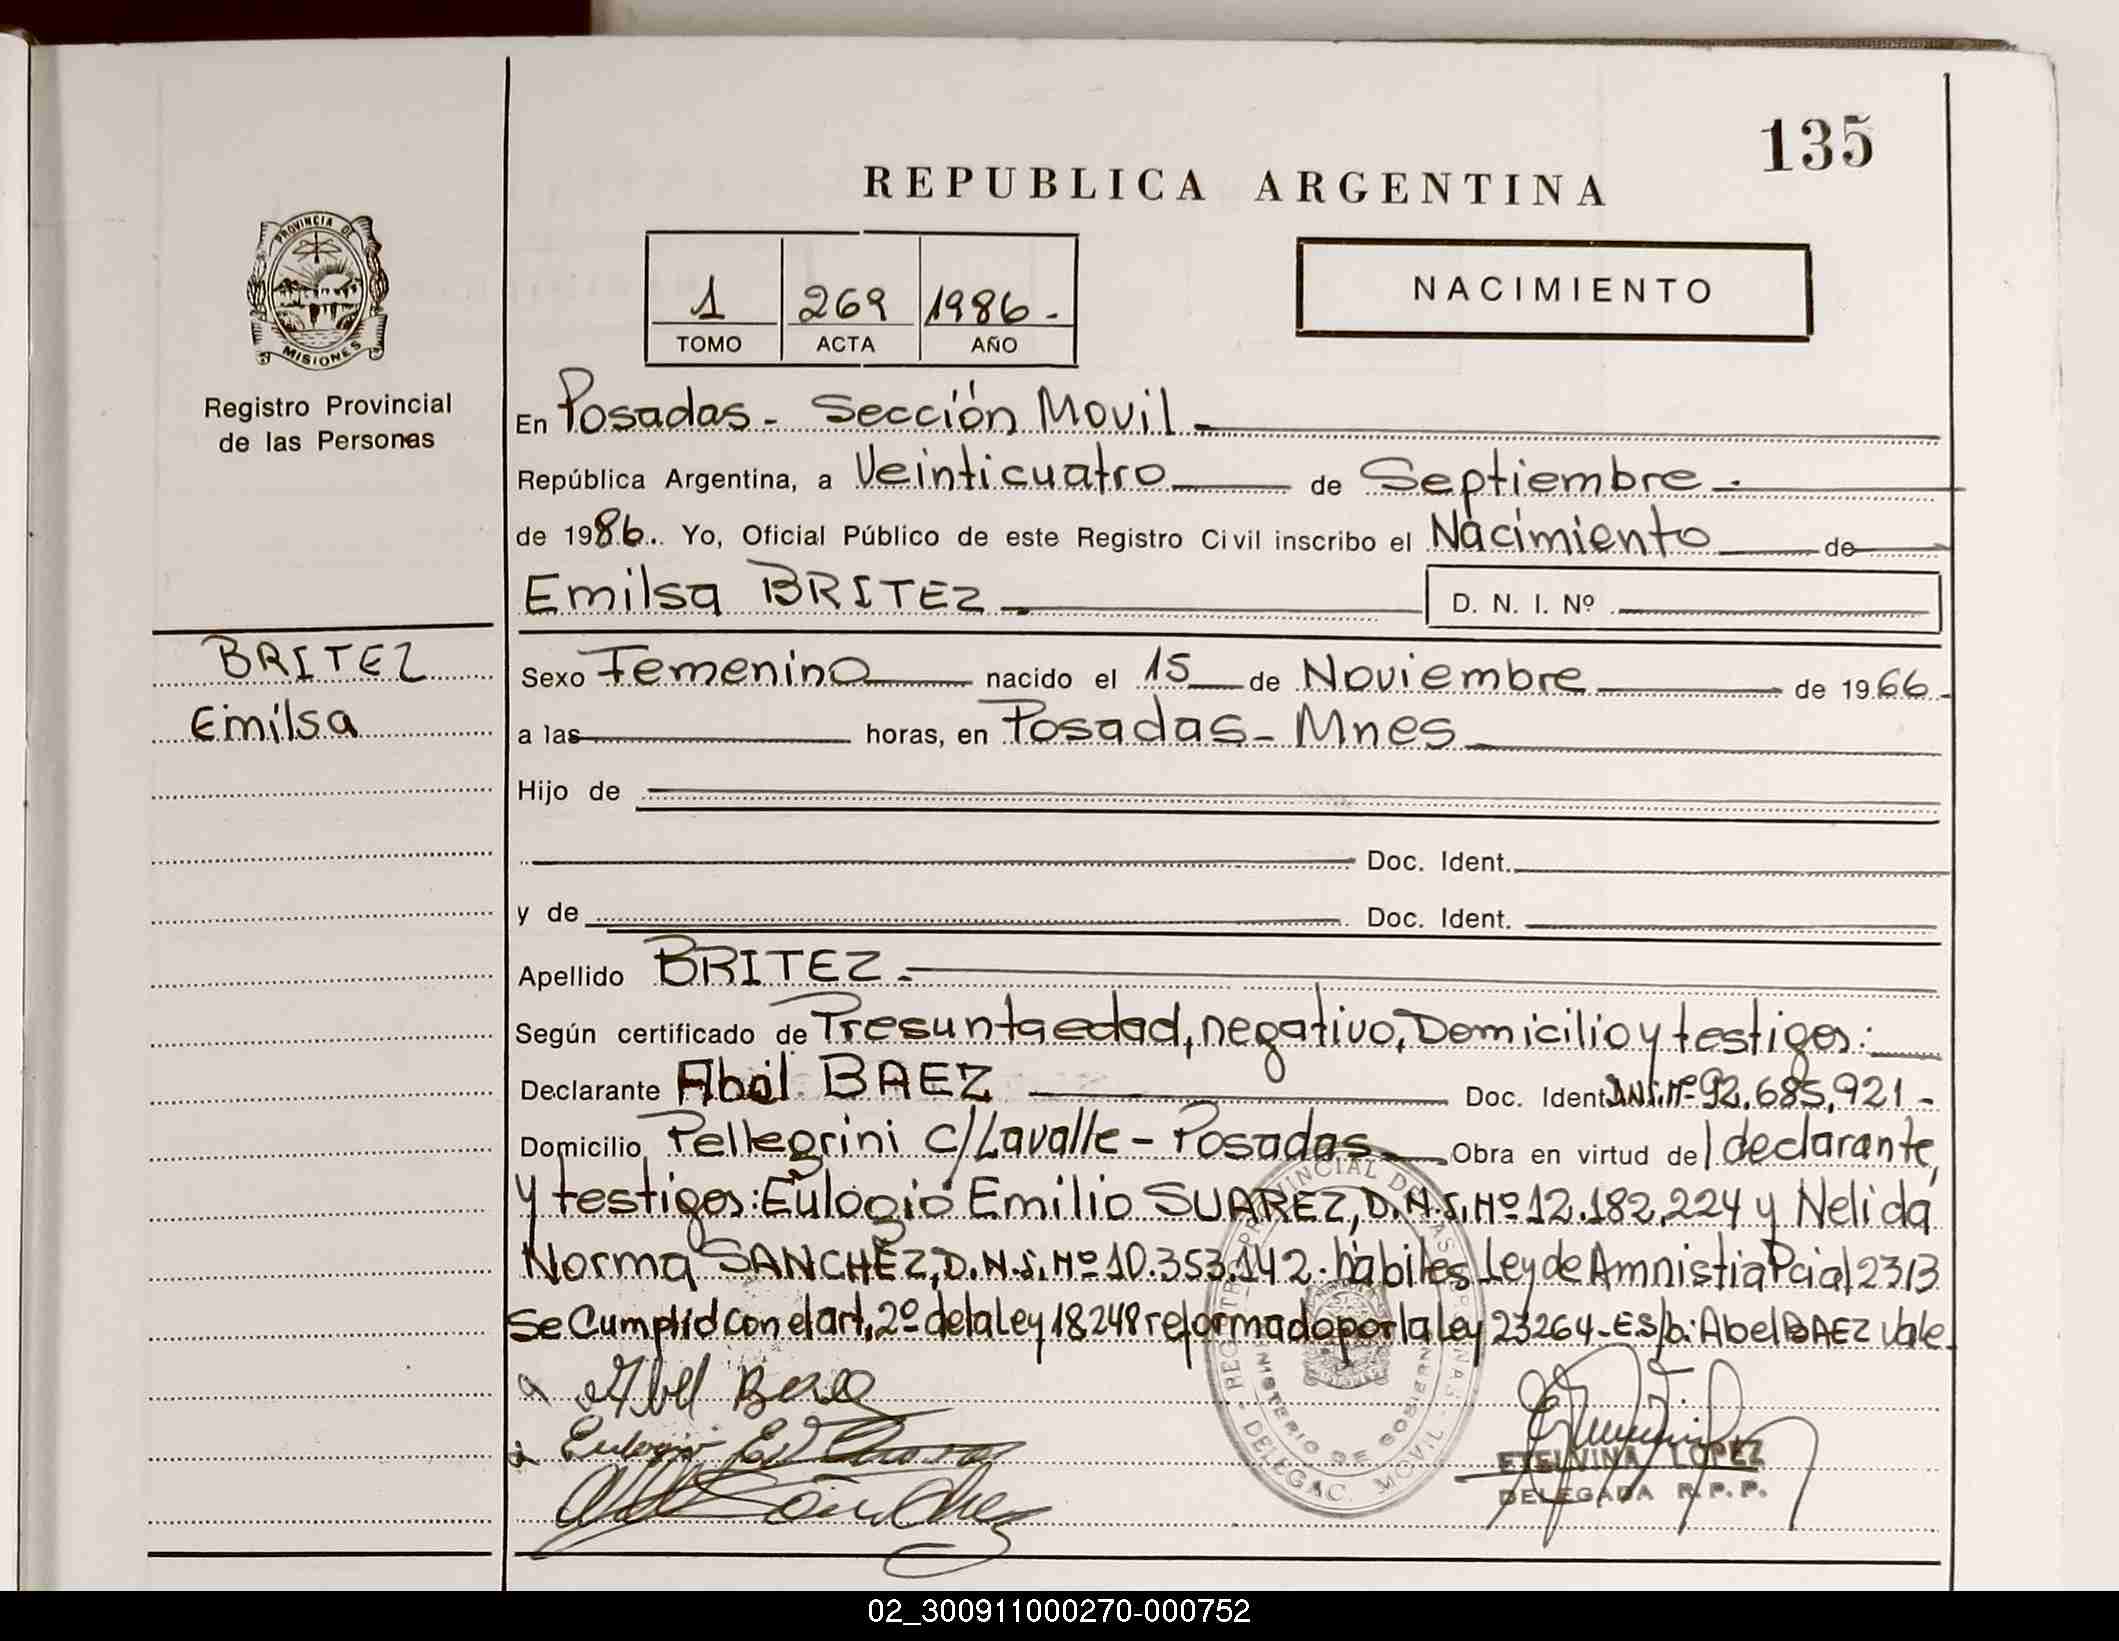 135
REPUBLICA ARGENTINA
PROVINCIA DE
MISIONES
Registro Provincial
de las Personas
1 269 1986.-
TOMO ACTA AÑO
NACIMIENTO
En Posadas- Sección Movil.-
República Argentina, a Veinticuatro de Septiembre.-
de 1986.. Yo, Oficial Público de este Registro Civil inscribo el Nacimiento de
Emilsa BRITEZ.- D. N. I. Nº
BRITEZ
Emilsa
Sexo Femenino nacido el 15 de Noviembre de 1966.-
a las horas, en Posadas- Mnes.-
Hijo de
Doc. Ident.
y de Doc. Ident.
Apellido BRITEZ.-
Según certificado de Presunta edad, negativo, Domicilio y testigos:
Declarante Abel BAEZ Doc. Ident. D.N.I. Nº 92.685.921-
Domicilio Pellegrini c/Lavalle- Posadas.- Obra en virtud del declarante,
y testigos: Eulogio Emilio SUAREZ, D.N.I. Nº 12.182.224 y Nelida
Norma SANCHEZ, D.N.I. Nº 10.353.142. hábiles Ley de Amnistia Pcial 2313
Se Cumplió con el art. 2º de la Ley 18248 reformado por la Ley 23264-ES/b: Abel BAEZ Vale.
Abel Baez
Eulogio
Sanchez
REGISTRO PROVINCIAL DE LAS PERSONAS
MINISTERIO DE GOBIERNO
DELEGAC. MOVIL
ETELVINA LOPEZ
DELEGADA R.P.P.
02_300911000270-000752